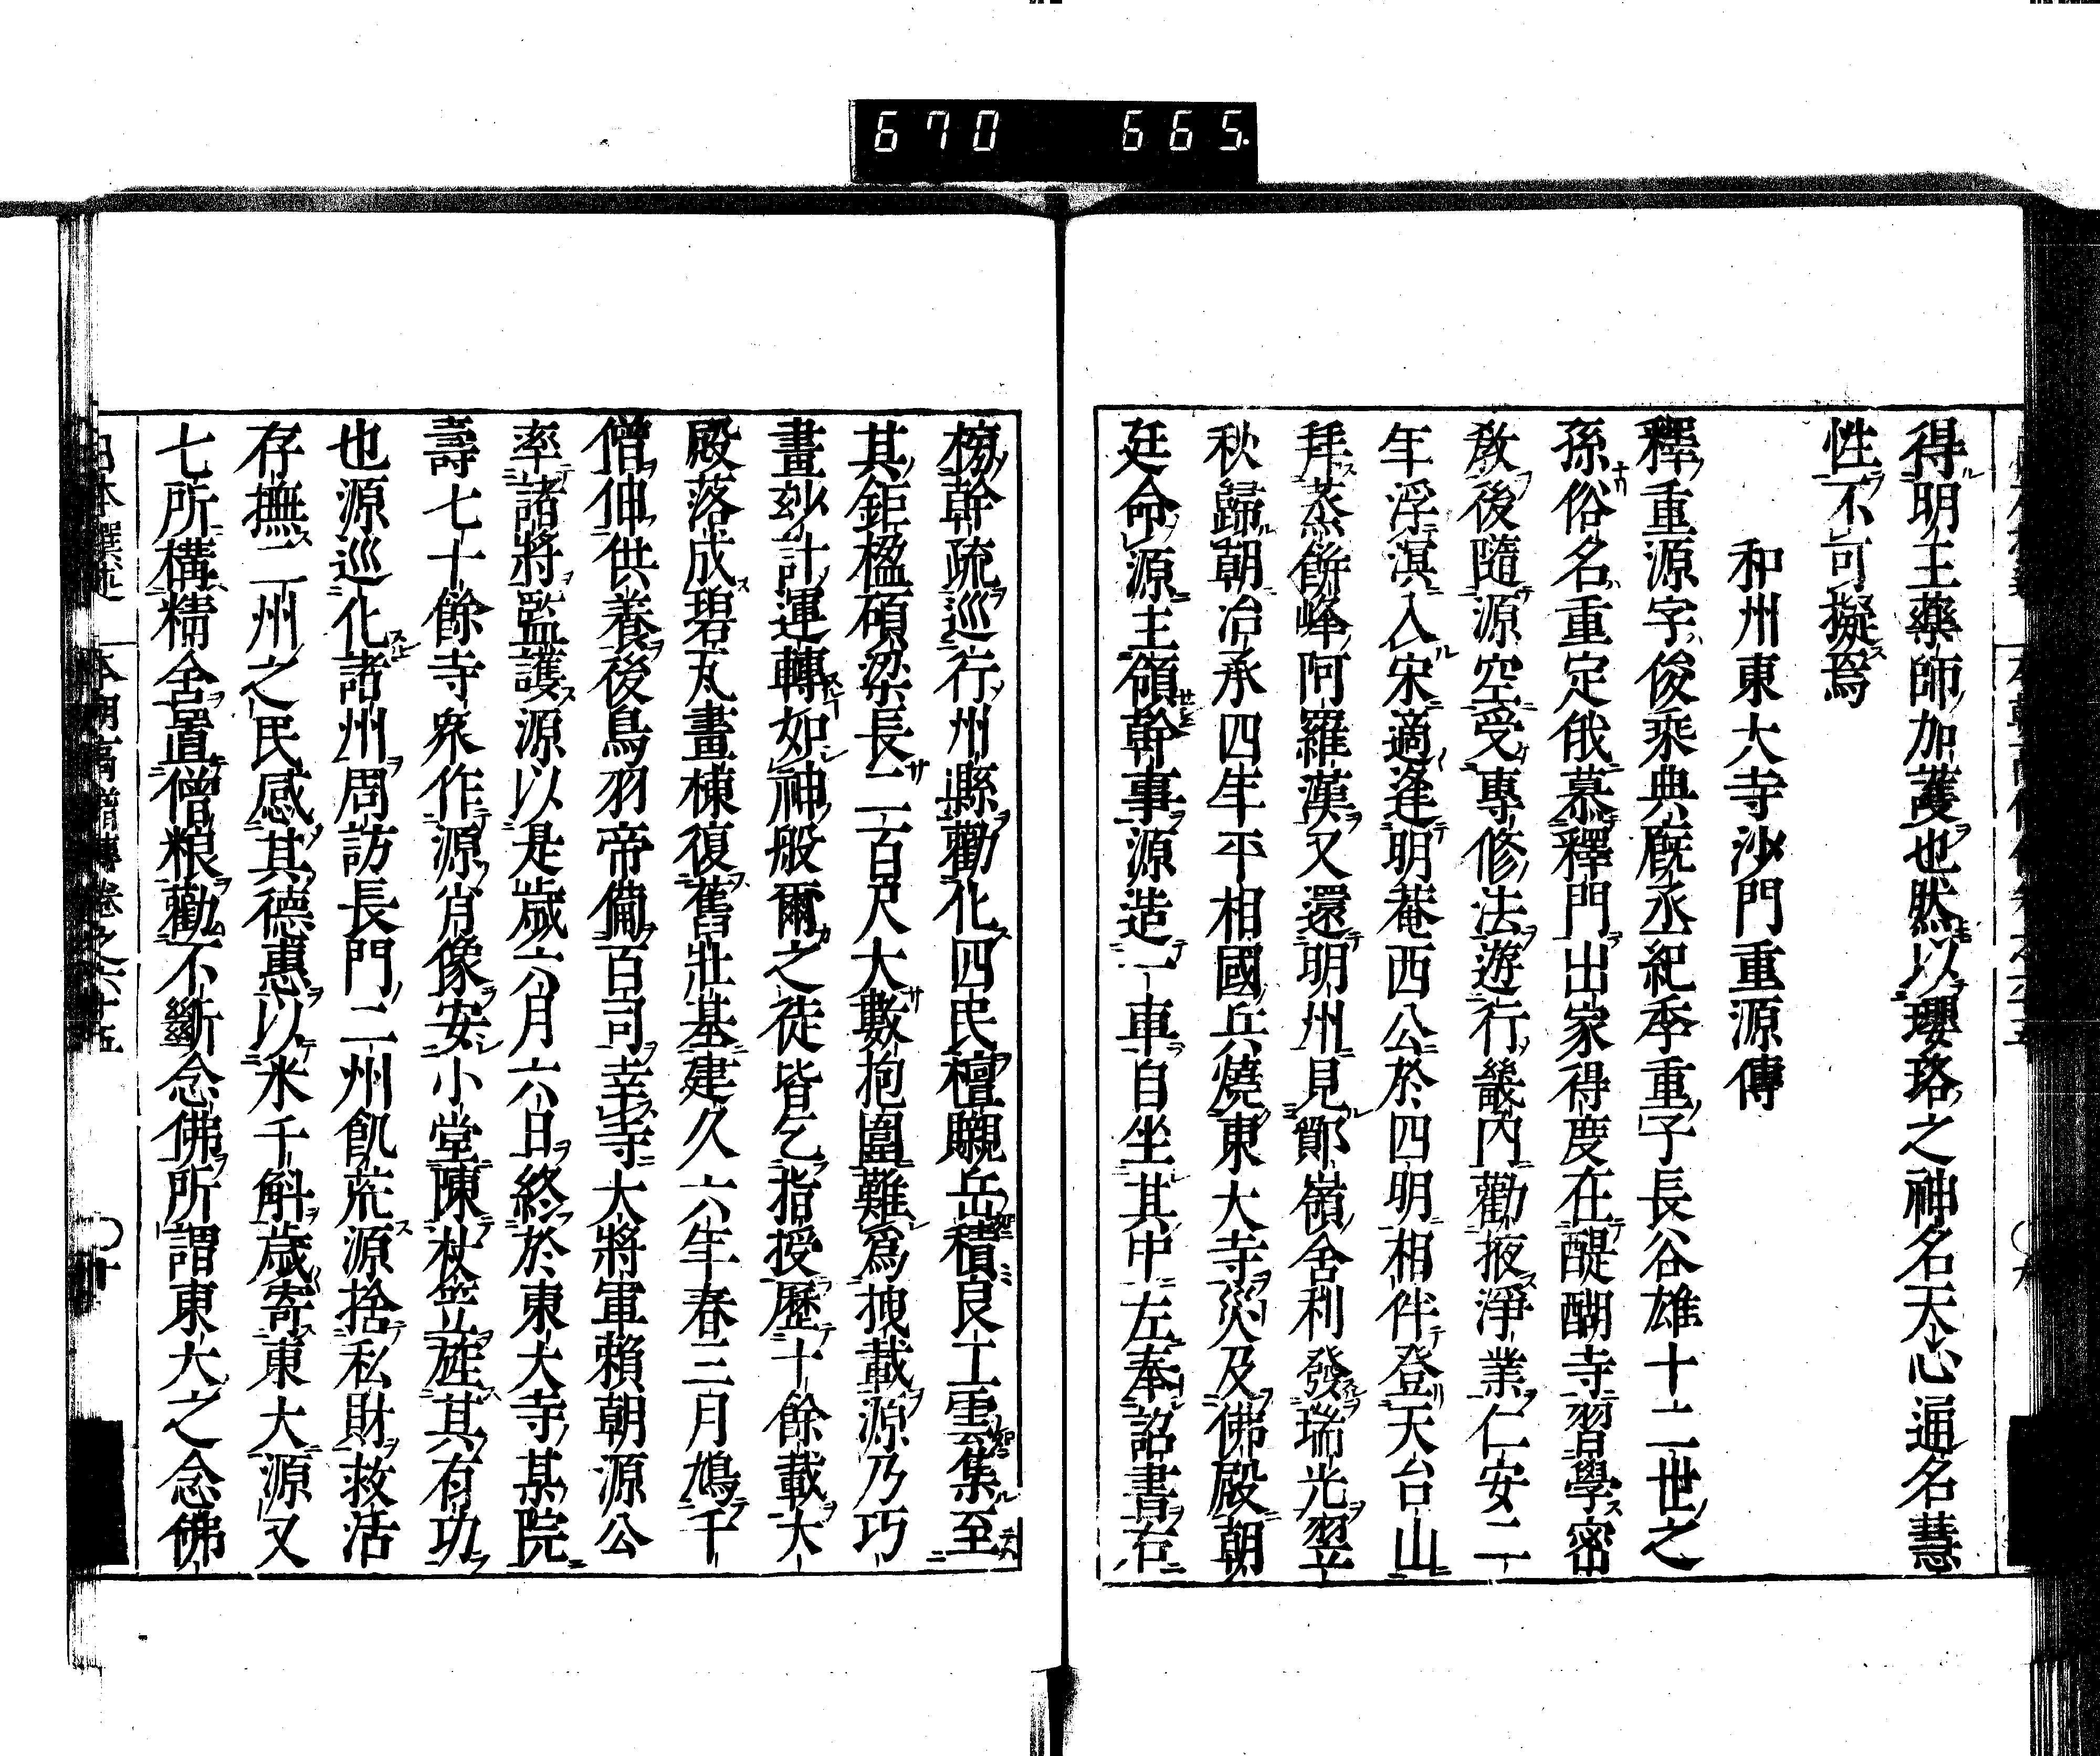 670 665.
得明王藥師加護也然以瓔珞之神名天心通名慧
性不可擬焉
和州東大寺沙門重源傳
釋重源字俊乘典厩丞紀季重子長谷雄十二世之
孫俗名重定俄慕釋門出家得度在醍醐寺習學密
教後隨源空受專修法遊行畿內勸掖淨業仁安二
年浮溟入宋適逢明菴西公於四明相伴登天台山
拜蒸餅峰阿羅漢又還明州見鄮嶺舍利發瑞光翌
秋歸朝治承四年平相國兵燒東大寺災及佛殿朝
廷命源主領幹事源造一車自坐其中左奉詔書右
榜幹疏巡行州縣勸化四民檀嚫岳積良工雲集至
其鉅楹碩梁長二百尺大數抱圍難爲拽載源乃巧
畫玅計運轉如神般爾之徒皆乞指授歷十餘載大
殿落成碧瓦畫棟復舊壯基建久六年春三月鳩千
僧伸供養後鳥羽帝備百司幸寺大將軍賴朝源公
率諸將監護源以是歲六月六日終於東大寺某院
壽七十餘寺衆作源肖像安小堂陳杖笠旌其有功
也源巡化諸州周訪長門二州飢荒源捨私財救活
存撫二州之民感其德惠以米千斛歲寄東大源又
七所構精舍置僧粮勸不斷念佛所謂東大之念佛